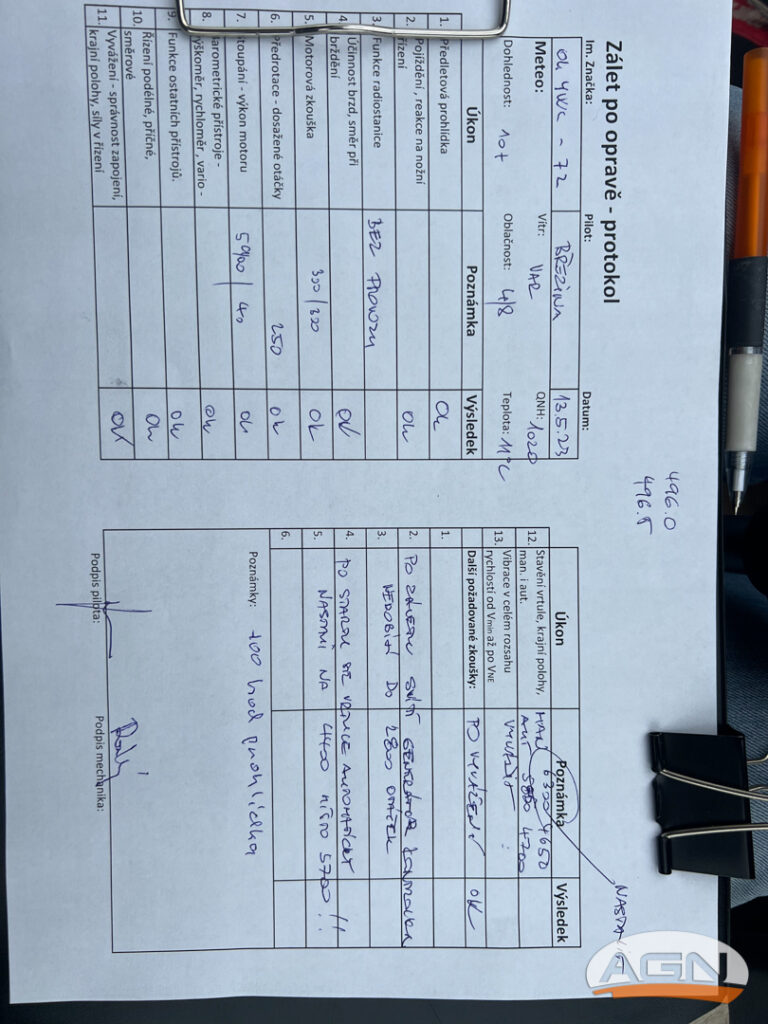 496.0
496.5
Zálet po opravě - protokol
Im. Značka: Pilot: Datum:
OK YWC - 72 BŘEZINA 13.5.23
Meteo: Vítr: VAR QNH: 1020
Dohlednost: 10+ Oblačnost: 4/8 Teplota: 11°C
Úkon Poznámka Výsledek
1. Předletová prohlídka OK
2. Pojíždění, reakce na nožní řízení OK
3. Funkce radiostanice BEZ PROVOZU
4. Účinnost brzd, směr při brždění OK
5. Motorová zkouška 300/300 OK
6. Předrotace - dosažené otáčky 250 OK
7. Stoupání - výkon motoru 5900/40 OK
8. Barometrické přístroje -
výškoměr, rychloměr, vario - OK
9. Funkce ostatních přístrojů. OK
10. Řízení podélné, příčné,
směrové OK
11. Vyvážení - správnost zapojení,
krajní polohy, síly v řízení OK
Úkon Poznámka Výsledek
12. Stavění vrtule, krajní polohy, MAN 6300 4650
man. i aut. AUT 5850 4700
13. Vibrace v celém rozsahu VYVÁŽIT
rychlostí od Vmin až po VNE
Další požadované zkoušky: PO VYVÁŽENÍ OK
1.
2. PO ZÁLETU SVÍTÍ GENERÁTOR
3. NEDOBÍJÍ DO 2800 OTÁČEK
4. PO STARTU SE VRTULE AUTOMATICKY
5. NASTAVÍ NA 4400 MÍSTO 5700 !!
6.
Poznámky: 100 hod prohlídka
Podpis pilota: Podpis mechanika:
AGN